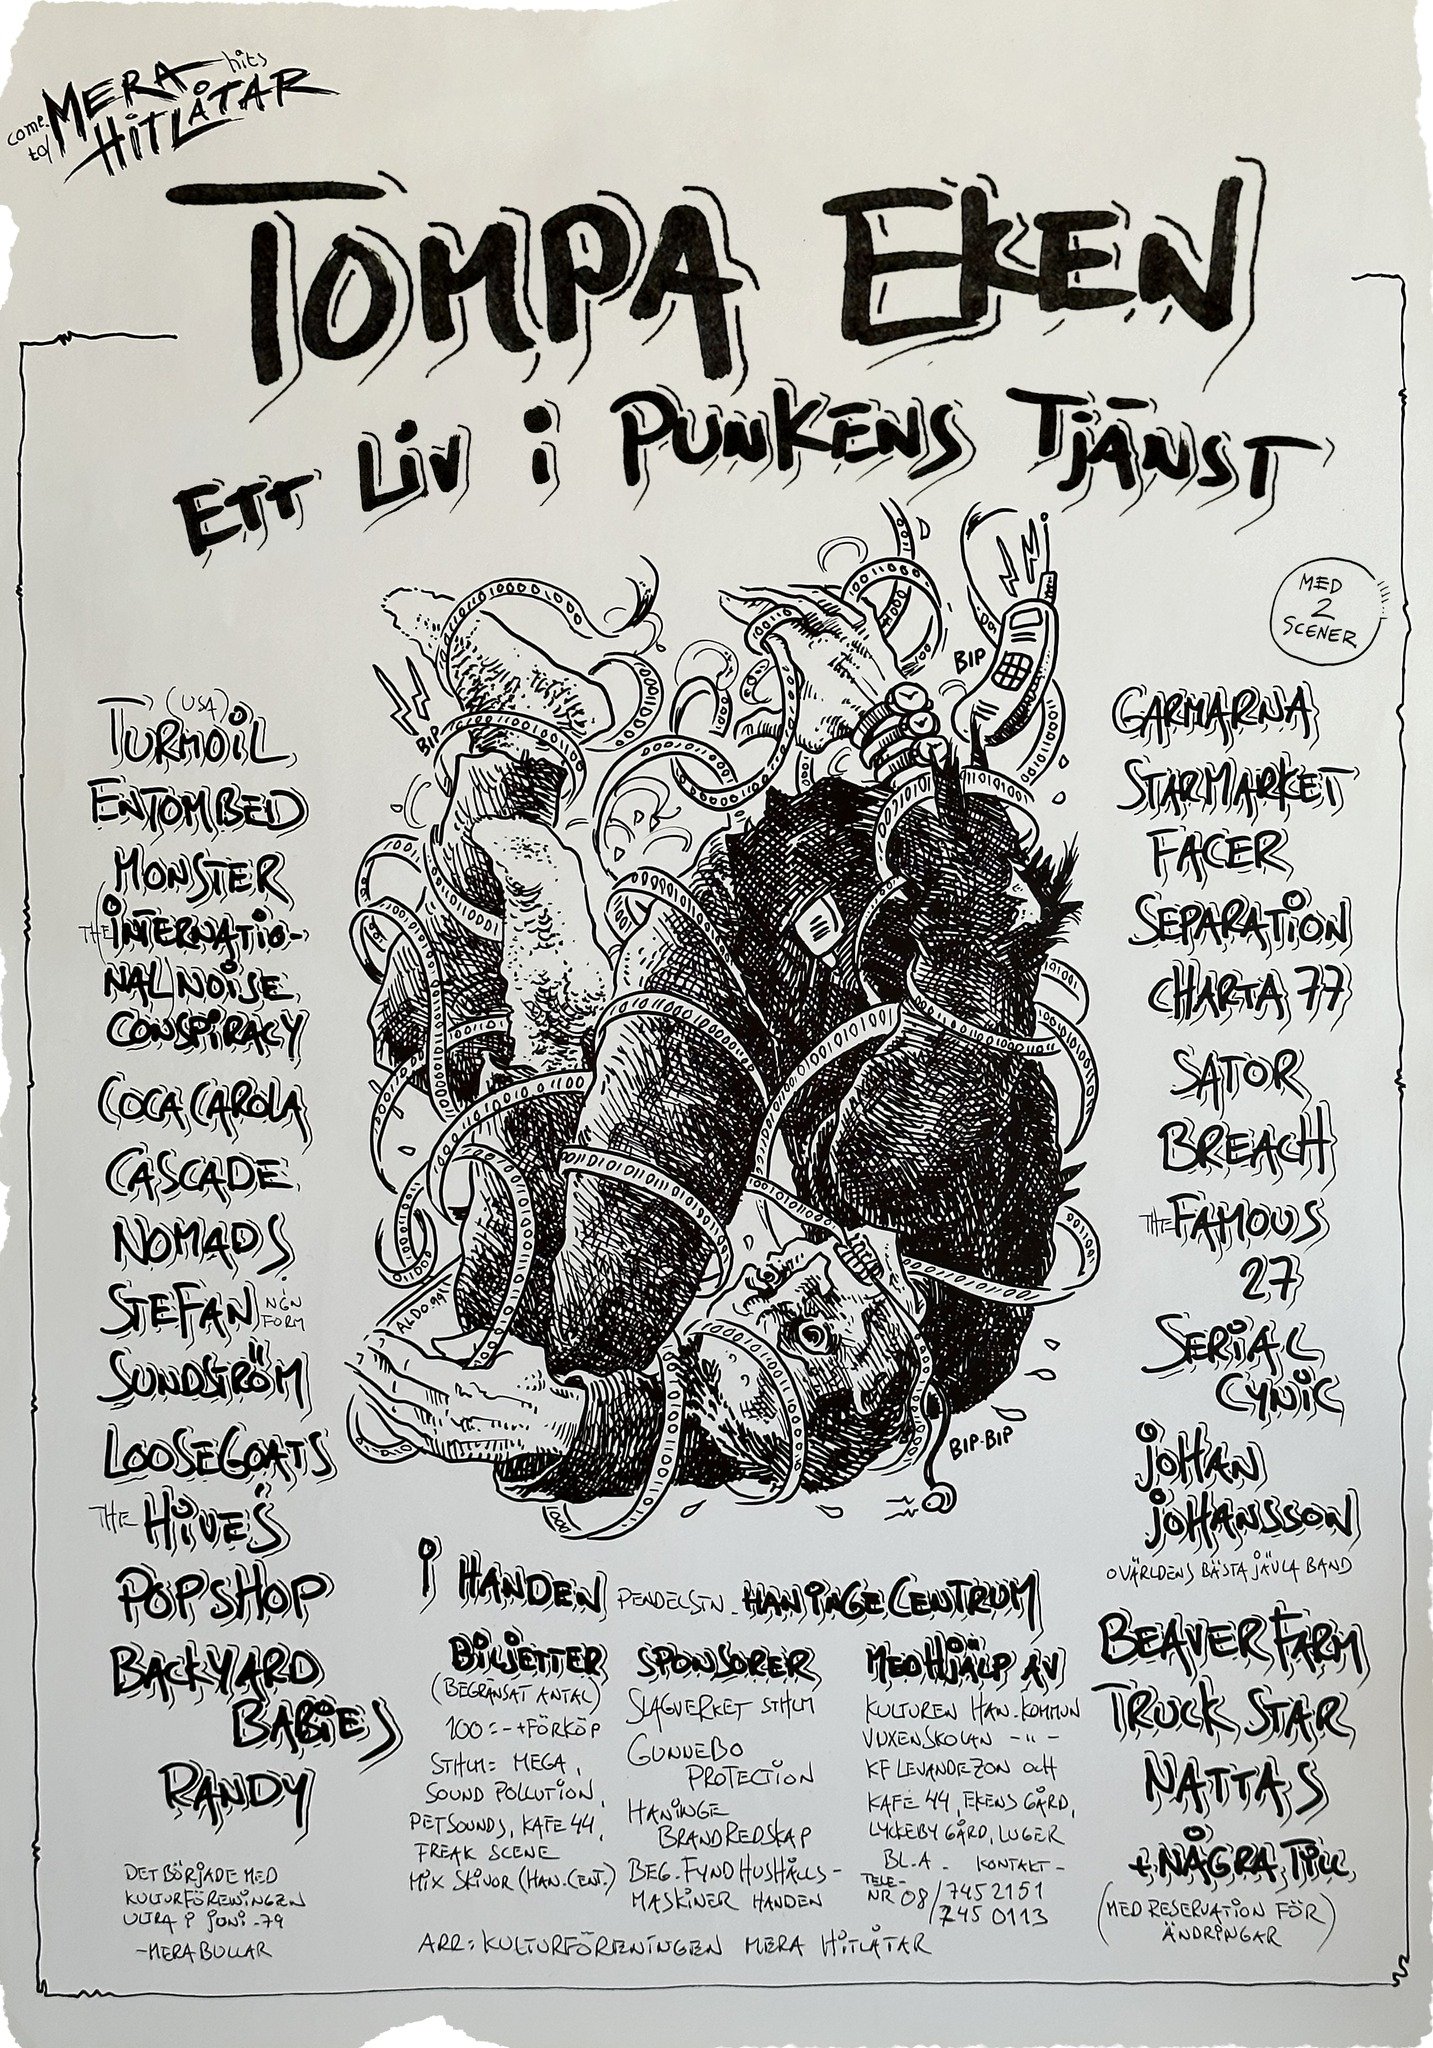 come to/ MERA hits
HITLÅTAR
TOMPA EKEN
ETT LIV I PUNKENS TJÄNST
MED
2
SCENER
(USA)
TURMOIL
ENTOMBED
MONSTER
THE INTERNATIO-
NAL NOISE
CONSPIRACY
COCA CAROLA
CASCADE
NOMADS
STEFAN NGN FORM
SUNDSTRÖM
LOOSEGOATS
THE HIVES
POPSHOP
BACKYARD
BABIES
RANDY
DET BÖRJADE MED
KULTURFÖRENINGEN
ULTRA I JUNI -79
-MERA BULLAR
BIP
BIP
BIP-BIP
ALDO 9911
I HANDEN PENDELSTN. HANINGE CENTRUM
BILJETTER
(BEGRÄNSAT ANTAL)
100:- +FÖRKÖP
STHLM: MEGA,
SOUND POLLUTION,
PETSOUNDS, KAFE 44,
FREAK SCENE
MIX SKIVOR (HAN.CENT.)
SPONSORER
SLAGVERKET STHLM
GUNNEBO
PROTECTION
HANINGE
BRANDREDSKAP
BEG. FYND HUSHÅLLS-
MASKINER HANDEN
MED HJÄLP AV
KULTUREN HAN. KOMMUN
VUXENSKOLAN -"-
KF LEVANDE ZON OCH
KAFE 44, EKENS GÅRD,
LYCKEBY GÅRD, LUGER
BL.A. KONTAKT-
TELE-
NR 08/7452151
/745 0113
ARR: KULTURFÖRENINGEN MERA HITLÅTAR
GARMARNA
STARMARKET
FACER
SEPARATION
CHARTA 77
SATOR
BREACH
THE FAMOUS
27
SERIAL
CYNIC
JOHAN
JOHANSSON
O VÄRLDENS BÄSTA JÄVLA BAND
BEAVER FARM
TRUCK STAR
NATTAS
+ NÅGRA TILL
(MED RESERVATION FÖR
ÄNDRINGAR)